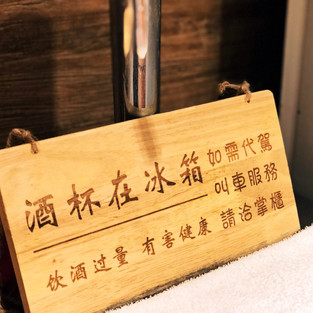 酒杯在冰箱
饮酒过量 有害健康
如需代駕
叫車服務
請洽掌櫃